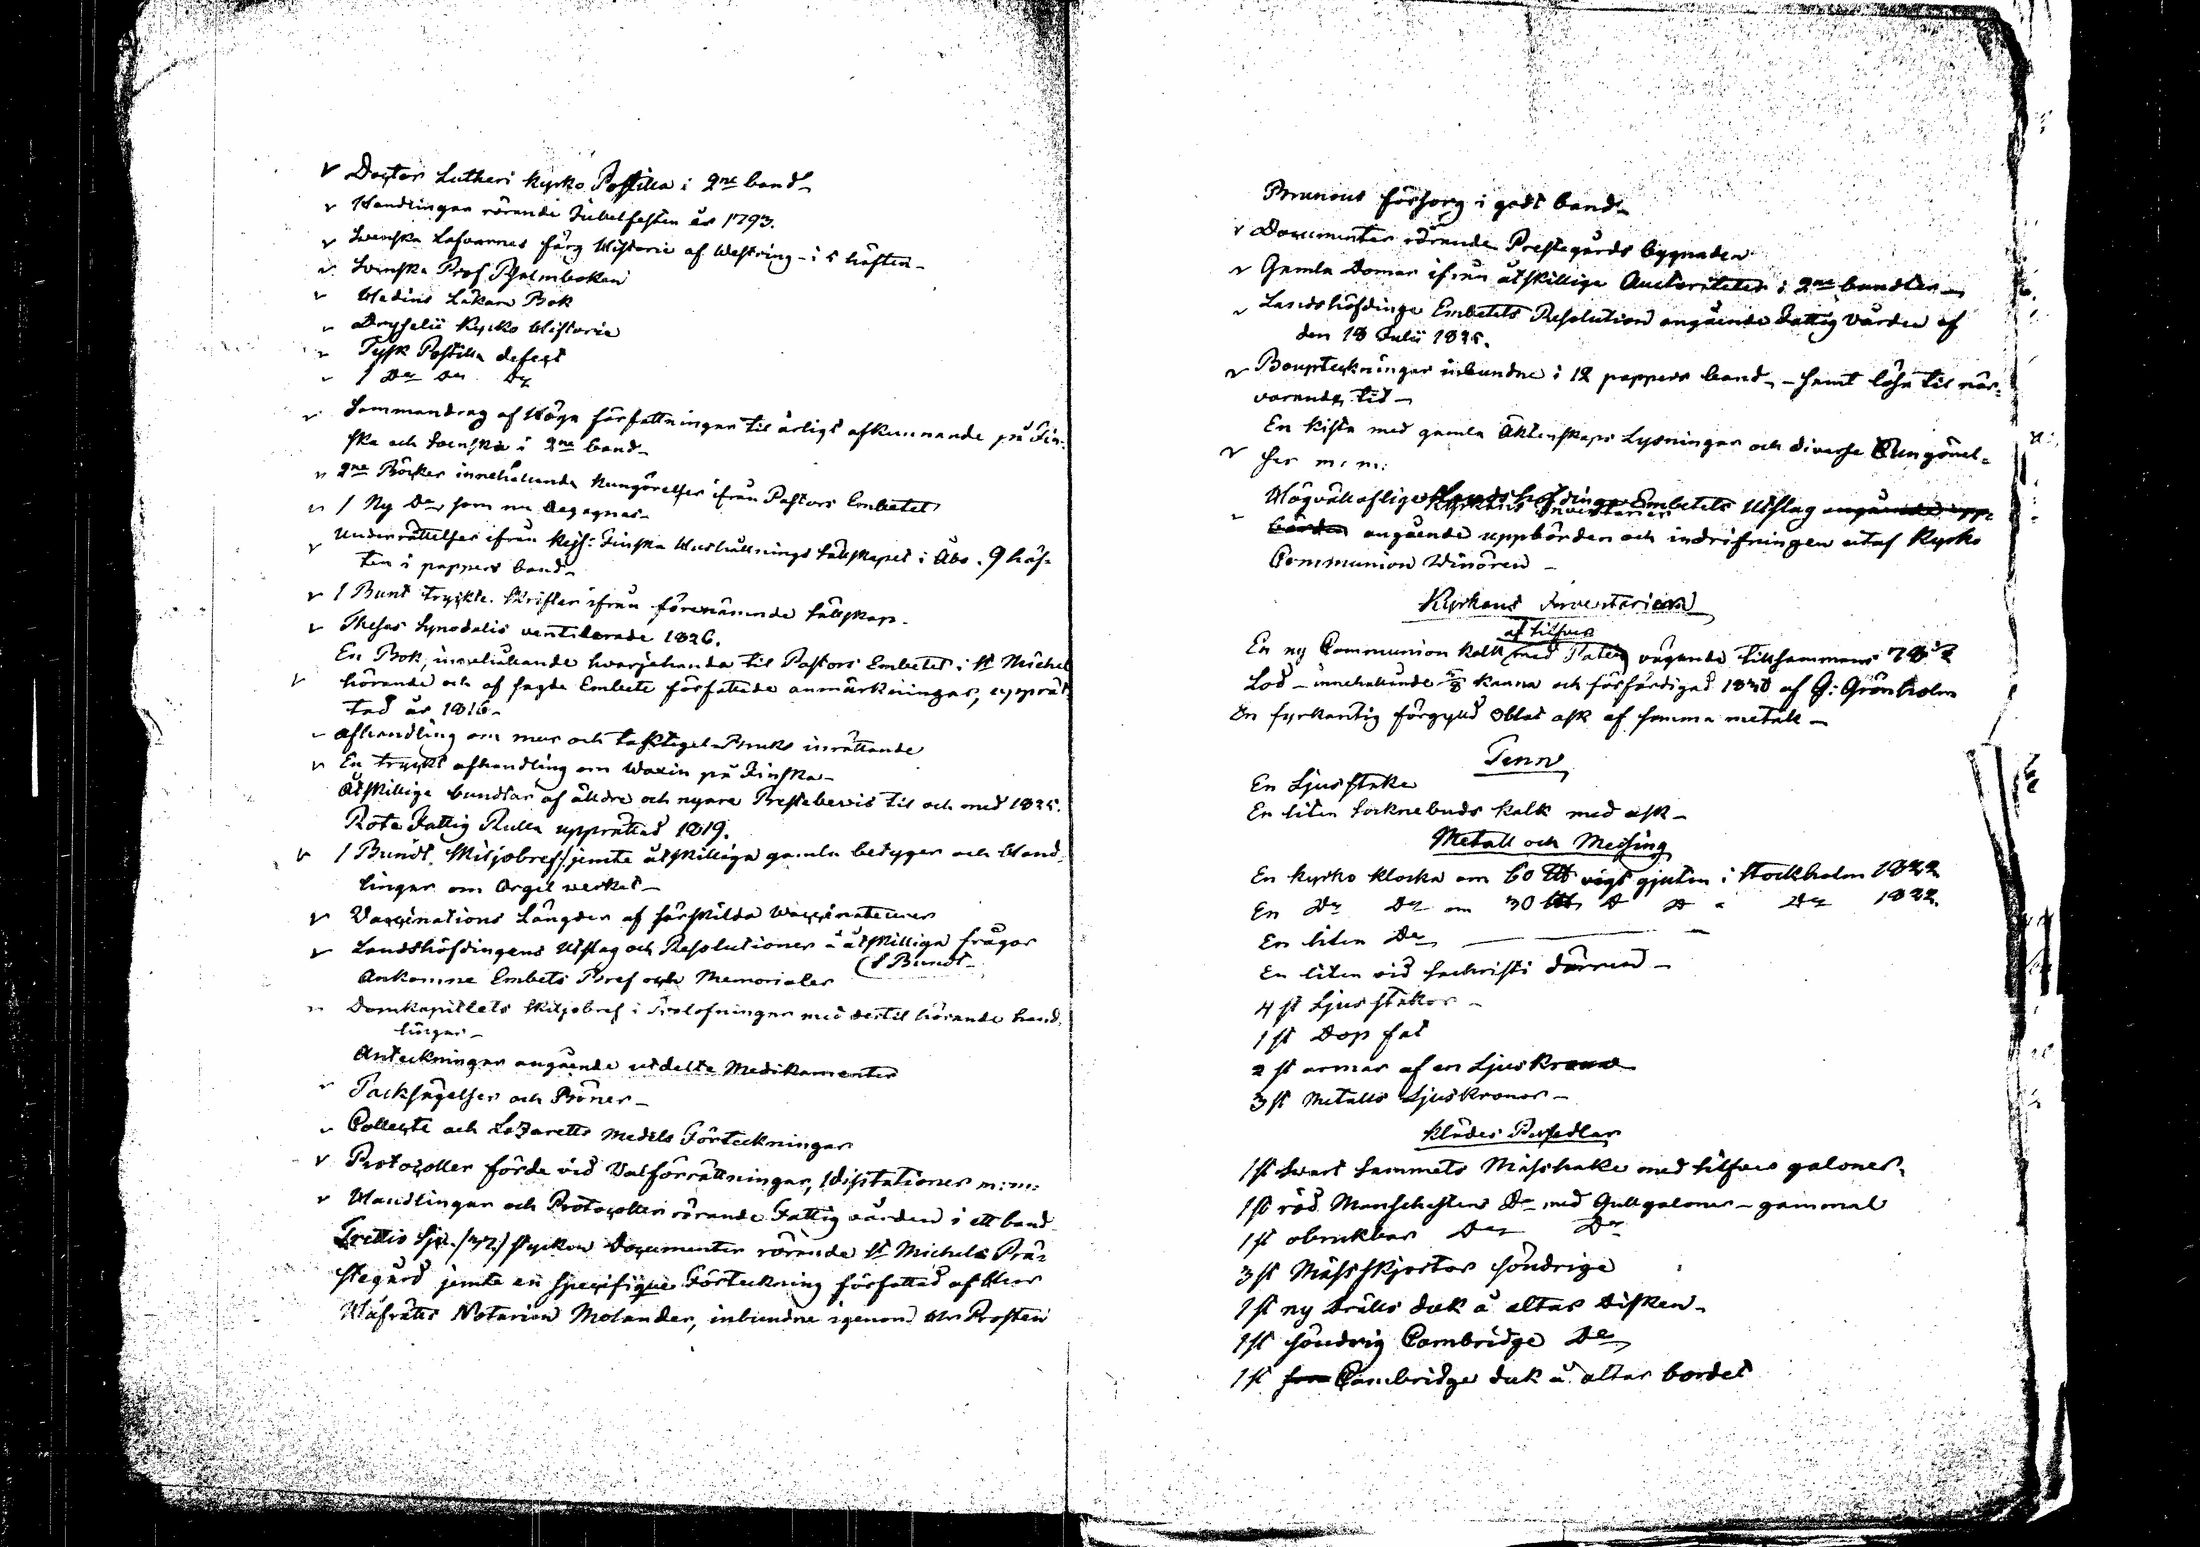 v Doctor Lutheri Kyrko Postilla i 2ne band
v Handlingar rörande Jubelfesten år 1793.
v Svenska Lafvarnes färg Historie af Westring - i 5 häften -
v Svenska Prof Psalmboken
v Hedins Läkare Bok
v Dryselii Kyrko Historia
v Tysk Postilla defect
v 1 Do Do Do
v Sammandrag af Höga författningar til årligt afkunnande på Fin-
ska och Svenska i 2ne band
v 2ne Böcker innehållande Kungörelser ifrån Pastors Embetet
v 1 Ny Do som nu begagnas
v Underrättelser ifrån Kejs: Finska Hushållnings Sällskapet i Åbo. 9 häf-
ten i pappers band
v 1 Bunt tryckte Skrifter ifrån förenämnde Sällskap.
v Theses Synodalis ventilerade 1826.
En Bok, innehållande hvarjehanda til Pastors Embetet i St Michel
v hörande och af sagde Embete författade anmärkningar, upprät-
tad år 1816
v afhandling om mur och taktegel-Bruks inrättande
v En tryckt afhandling om Vaccin på Finska
Åtskillige bundtar af äldre och nyare Prestebevis til och med 1825.
Rote Fattig Rulla upprättad 1819.
v 1 Bundt Skiljobref jemte åtskilliga gamla betyger och hand-
lingar om Orgel verket
v Vaccinations Längder af särskilda Vaccinateurer
v Landshöfdingens Utslag och Resolutioner i åtskilliga frågor
(1 Bundt
Ankomne Embets Bref och Memorialer
v Domkapitlets Skiljobref i Trolofningar med dertil hörande hand-
lingar
Anteckningar angående utdelte Medikamenter
v Tacksägelser och Böner
v Collecte och Lazaretts medels Förteckningar
v Protocoller förde vid Valförrättningar, Visitationer m: m:
v Handlingar och Protocoller rörande Fattig vården i ett band
Trettio Sju /37/ stycken Documenter rörande St Michels Prä-
stegård jemte en specifique Förteckning författad af Herr
Häfrätts Notarien Molander, inbundne igenom Hr Prosten
Brunous försorg i godt band
v Documenter rörande Prestegårds bygnaden
v Gamla Domar ifrån åtskillige Auctoriteter i 2ne bundtar
v Landshöfdinge Embetets Resolution angående Fattig Vården af
den 18 Julii 1825.
v Boupteckningar inbundne i 12 pappers band, - samt löse til när-
varande tid -
En kista med gamla Äktenskaps Lysningar och diverse Kungörel-
v ser m: m:
Högvällofliga Landshöfdinge Embetets Utslag angående upp-
Kyrkans Inventarier
börden angående uppbörden och indrifningen utaf Kyrko
Communion Vinören -
Kyrkans Inventarier
af Silfver
En ny Communion kalk med Paten vägande tillsammans
Lod - innehållande kanna och förfärdigad 1830 af G: Grönholm
En fyrkantig förgylld Oblat ask af samma metall -
Tenn
En Ljusstake
En liten Socknebuds kalk med ask -
Metall och Messing
En kyrko klocka om 60 vigt gjuten i Stockholm 1822
En Do Do om 30 Do 1822.
En liten Do
En liten vid Sachristi dörren -
4 st Ljusstakar -
1 st Dop fat
2 st armar af en Ljuskrona
3 st Metalls Ljuskronor -
Klädes Persedlar
1 st Svart Sammets Mässhake med Silfver galoner.
1 st röd Manschesters Do med Gullgaloner - gammal
1 st obrukbar Do Do
3 st Mässskjortor söndrige
1 st ny Drälls duk å altar disken -
1 st söndrig Cambridge Do
1 st Cambridge duk å altar bordet